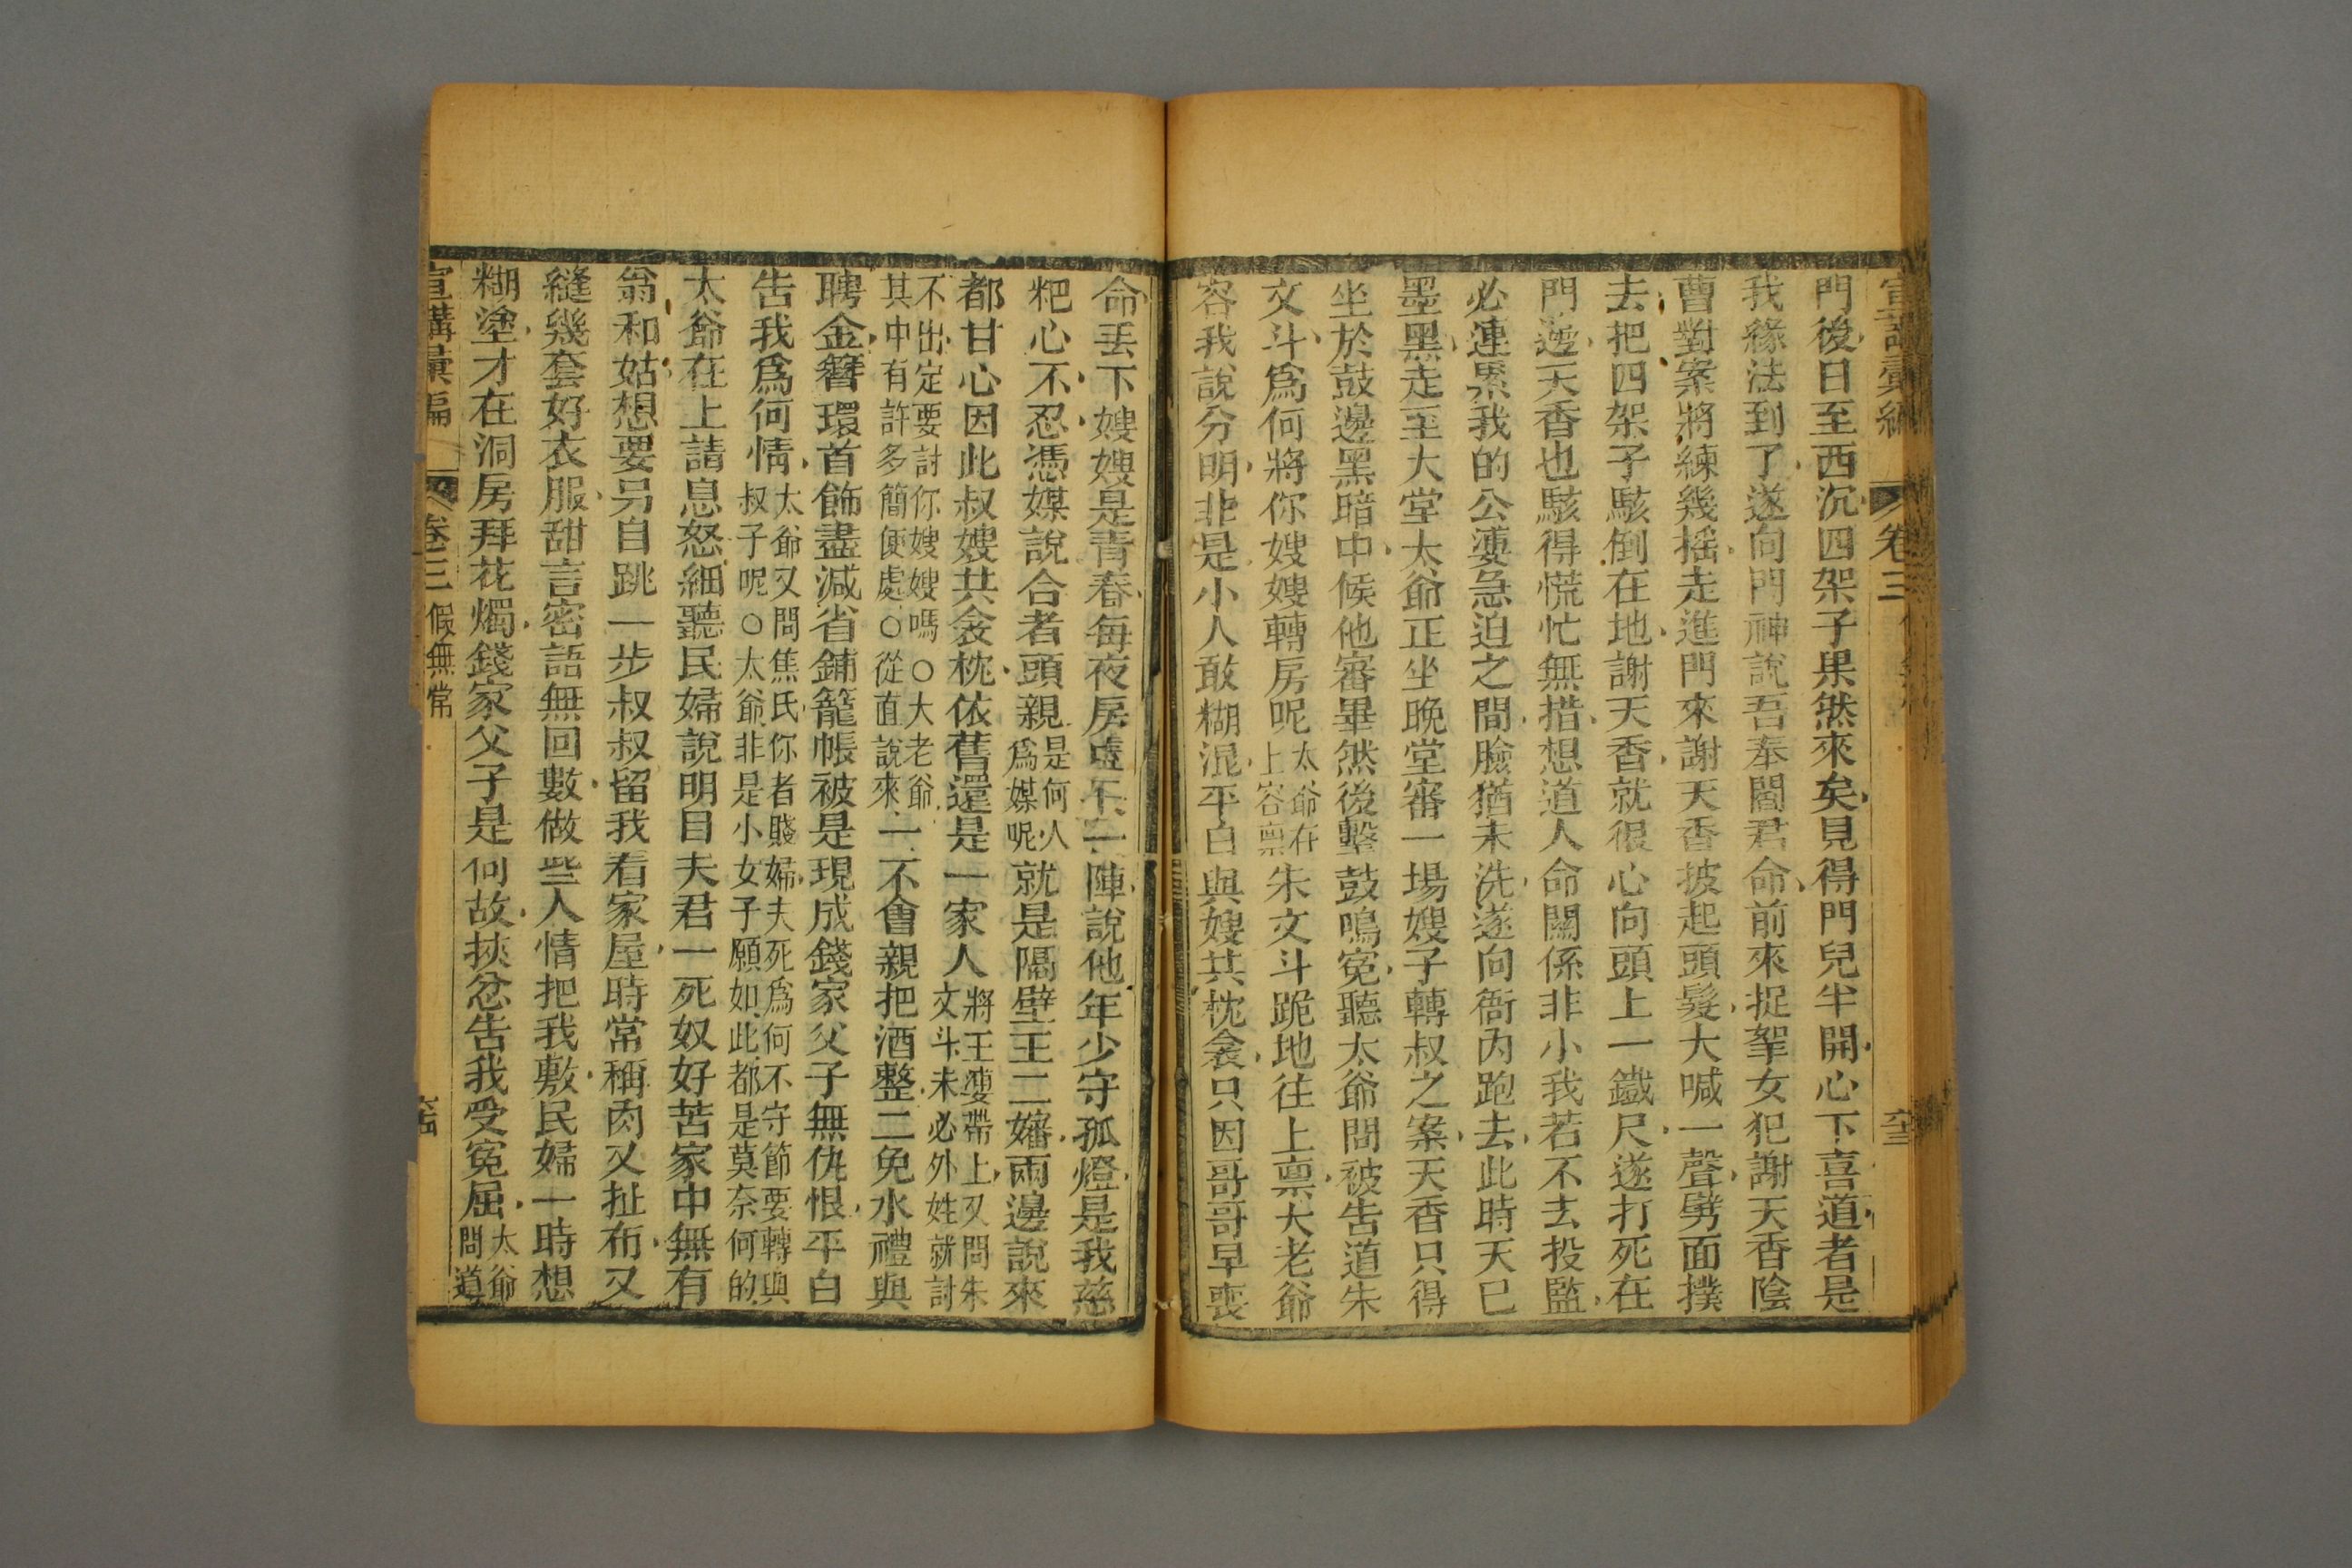 宣講彙編 卷三
門後日至西沉四架子果然來矣見得門兒半開心下喜道者是
我緣法到了遂向門神說吾奉閻君命前來捉拏女犯謝天香陰
曹對案將練幾搖走進門來謝天香披起頭髮大喊一聲劈面撲
去把四架子駭倒在地謝天香就很心向頭上一鐵尺遂打死在
門邊天香也駭得慌忙無措想道人命關係非小我若不去投監
必連累我的公婆急迫之間臉猶未洗遂向衙內跑去此時天已
墨黑走至大堂太爺正坐晚堂審一場嫂子轉叔之案天香只得
坐於鼓邊黑暗中候他審畢然後擊鼓鳴冤聽太爺問被告道朱
文斗為何將你嫂嫂轉房呢太爺在上容禀朱文斗跪地往上禀大老爺
容我說分明非是小人敢糊混平白與嫂共枕衾只因哥哥早喪
命丟下嫂嫂是青春每夜房一陣說他年少守孤燈是我慈
粑心不忍憑媒說合者頭親是何人為媒呢就是隔壁王二嬸兩邊說來
都甘心因此叔嫂共衾枕依舊還是一家人將王婆帶上又問朱文斗未必外姓就討
不出定要討你嫂嫂嗎○大老爺其中有許多簡便處○從直說來一不會親把酒整二免水禮與
聘金簪環首飾盡減省鋪籠帳被是現成錢家父子無仇恨平白
告我為何情太爺又問焦氏你者賤婦夫死為何不守節要轉與叔子呢○太爺非是小女子願如此都是莫奈何的
太爺在上請息怒細聽民婦說明目夫君一死奴好苦家中無有
翁和姑想要另自跳一步叔叔留我看家屋時常稱肉又扯布又
縫幾套好衣服甜言密語無回數做些人情把我敷民婦一時想
糊塗才在洞房拜花燭錢家父子是何故挾忿告我受冤屈太爺問道
宣講彙編 卷三 假無常